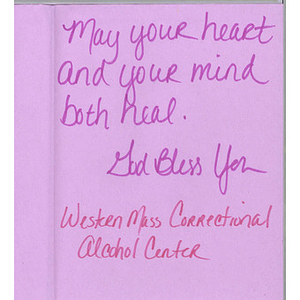 May your heart
and your mind
both heal.
God Bless You
Western Mass Correctional
Alcohol Center